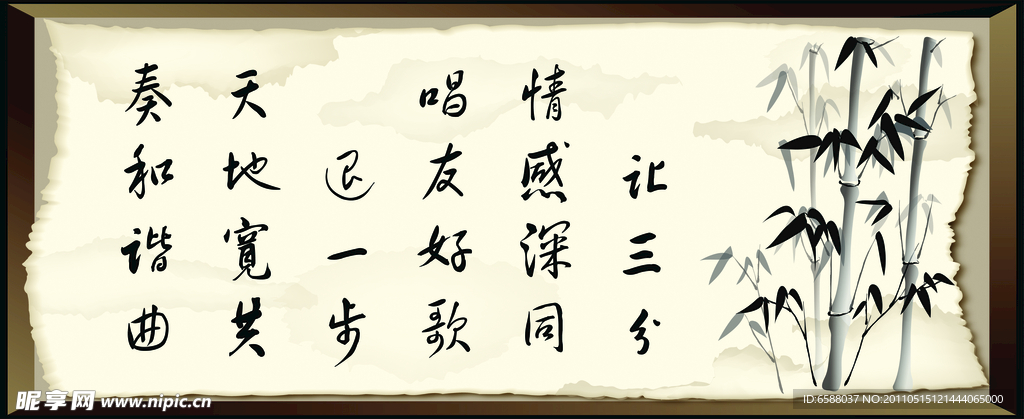 让三分
情感深同
唱友好歌
退一步
天地宽共
奏和谐曲
昵享网 www.nipic.cn
ID:6588037 NO:20110515121444065000